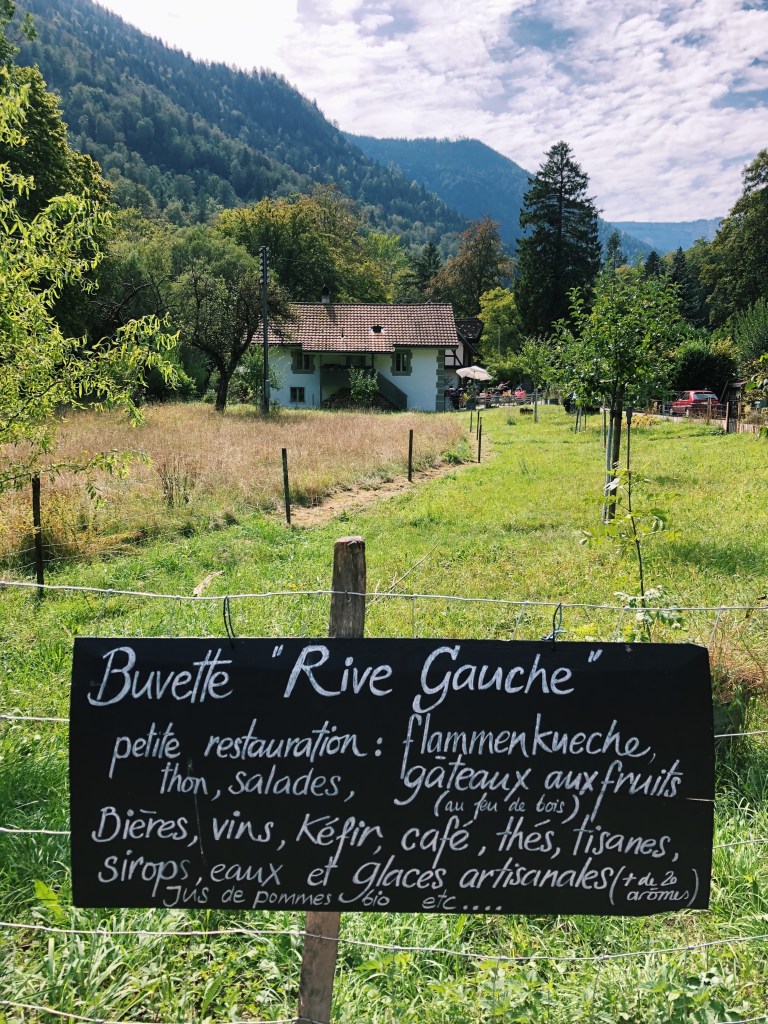 Buvette "Rive Gauche"
petite restauration : flammenkueche,
thon, salades, gâteaux aux fruits
(au feu de bois)
Bières, vins, Kéfir, café, thés, tisanes,
sirops, eaux et glaces artisanales (+ de 20 arômes)
Jus de pommes bio etc....